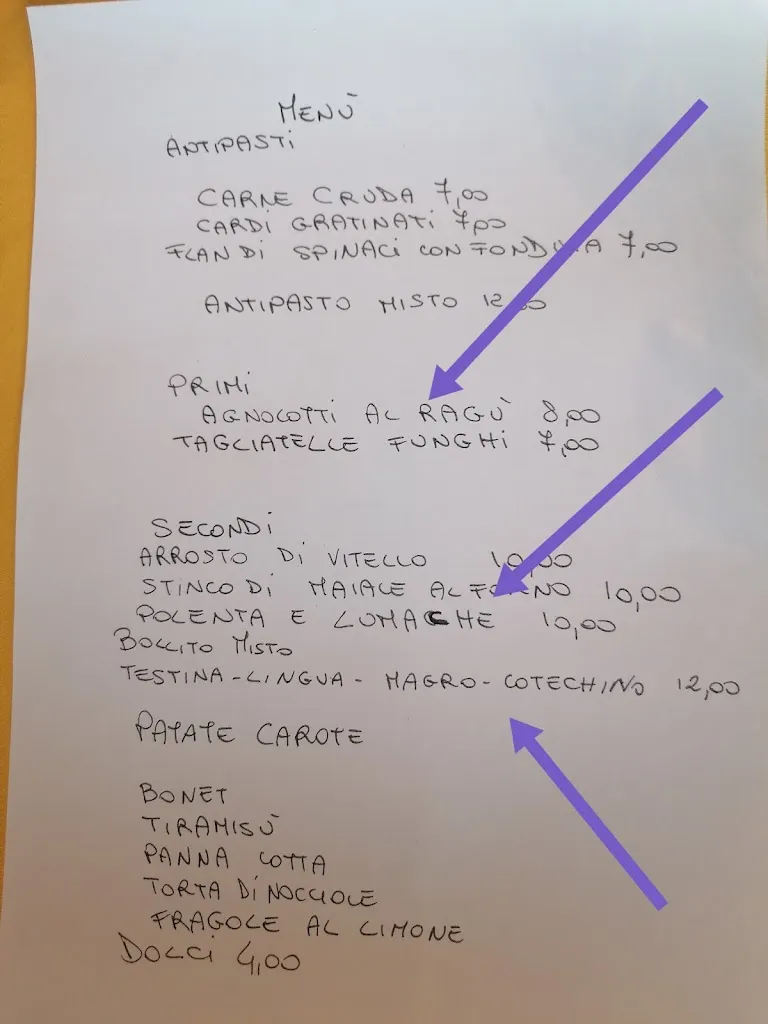 MENÙ
ANTIPASTI
CARNE CRUDA 7,00
CARDI GRATINATI 7,00
FLAN DI SPINACI CON 7,00
ANTIPASTO MISTO
PRIMI
AGNOLOTTI AL RAGÙ 8,00
TAGLIATELLE FUNGHI 7,00
SECONDI
ARROSTO DI VITELLO 10,00
STINCO DI MAIALE AL 10,00
POLENTA E LUMACHE 10,00
BOLLITO MISTO
TESTINA - LINGUA - MAGRO - COTECHINO 12,00
PATATE CAROTE
BONET
TIRAMISÙ
PANNA COTTA
TORTA DI NOCCIOLE
FRAGOLE AL LIMONE
DOLCI 4,00